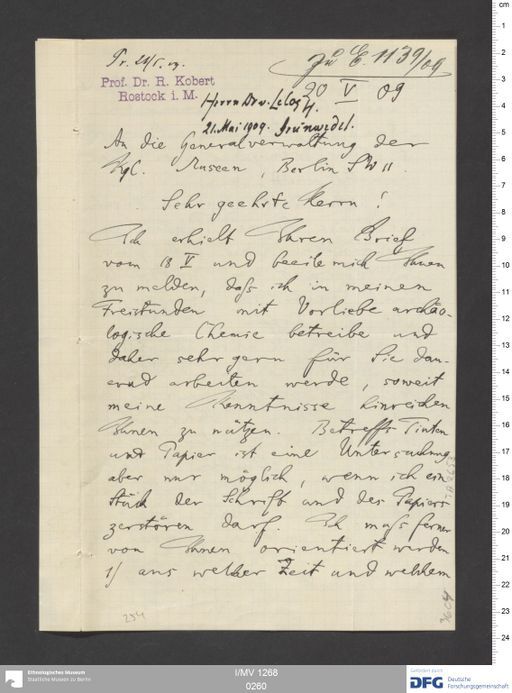 Pr. 21/5. 09.
Zu E. 1139/09
Prof. Dr. R. Kobert
Rostock i. M.
20 V 09
Herrn Dr. v. LeCoq
21. Mai 1909. Grünwedel.
An die Generalverwaltung der
Kgl. Museen, Berlin SW 11
Sehr geehrte Herrn!
Ich erhielt Ihren Brief
vom 18 V und beeile mich Ihnen
zu melden, daß ich in meinen
Freistunden mit Vorliebe archäo-
logische Chemie betreibe und
daher sehr gern für Sie dau-
ernd arbeiten werde, soweit
meine Kenntnisse hinreichen
Ihnen zu nützen. Betreffs Tinten
und Papier ist eine Untersuchung
aber nur möglich, wenn ich ein
Stück der Schrift und des Papiers
zerstören darf. Ich muß ferner
von Ihnen orientiert werden
1) aus welcher Zeit und welchem
254
Ethnologisches Museum
Staatliche Museen zu Berlin
I/MV 1268
0260
Gefördert durch
DFG Deutsche
Forschungsgemeinschaft
cm
1
2
3
4
5
6
7
8
9
10
11
12
13
14
15
16
17
18
19
20
21
22
23
24